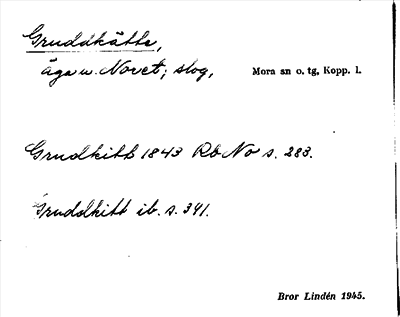 Gruddkätte,
äga u. Novet; slog, Mora sn o. tg, Kopp. l.
Grudkitt 1843 Rb No s. 283.
Gruddkitt ib. s. 341.
Bror Lindén 1945.